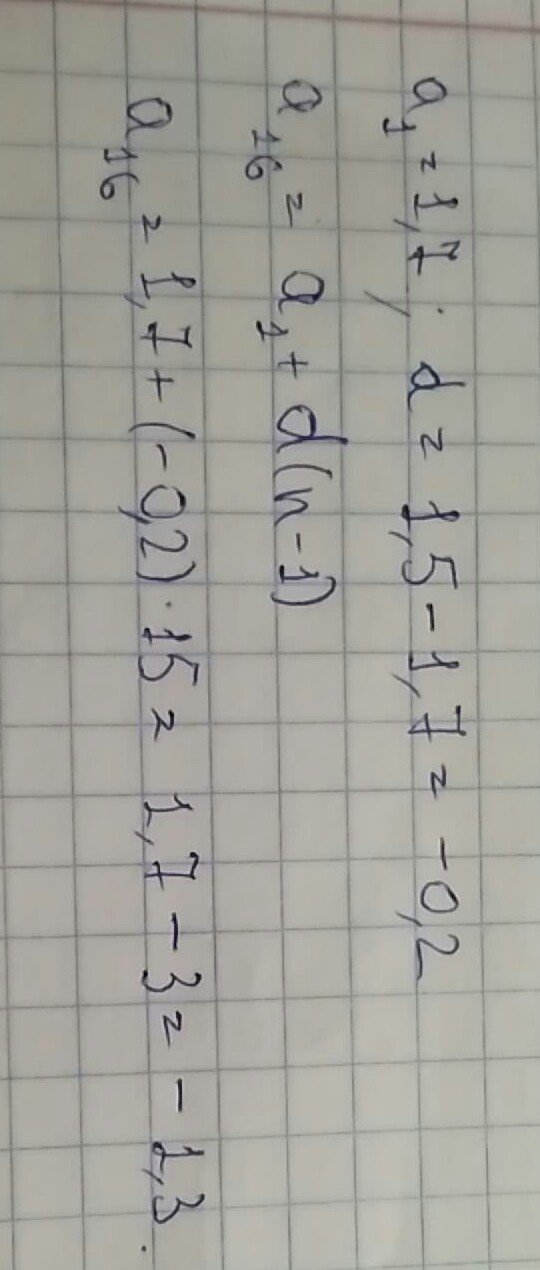 a₁ = 1,7; d = 1,5 - 1,7 = -0,2
a₁₆ = a₁ + d(n-1)
a₁₆ = 1,7 + (-0,2) · 15 = 1,7 - 3 = -1,3.